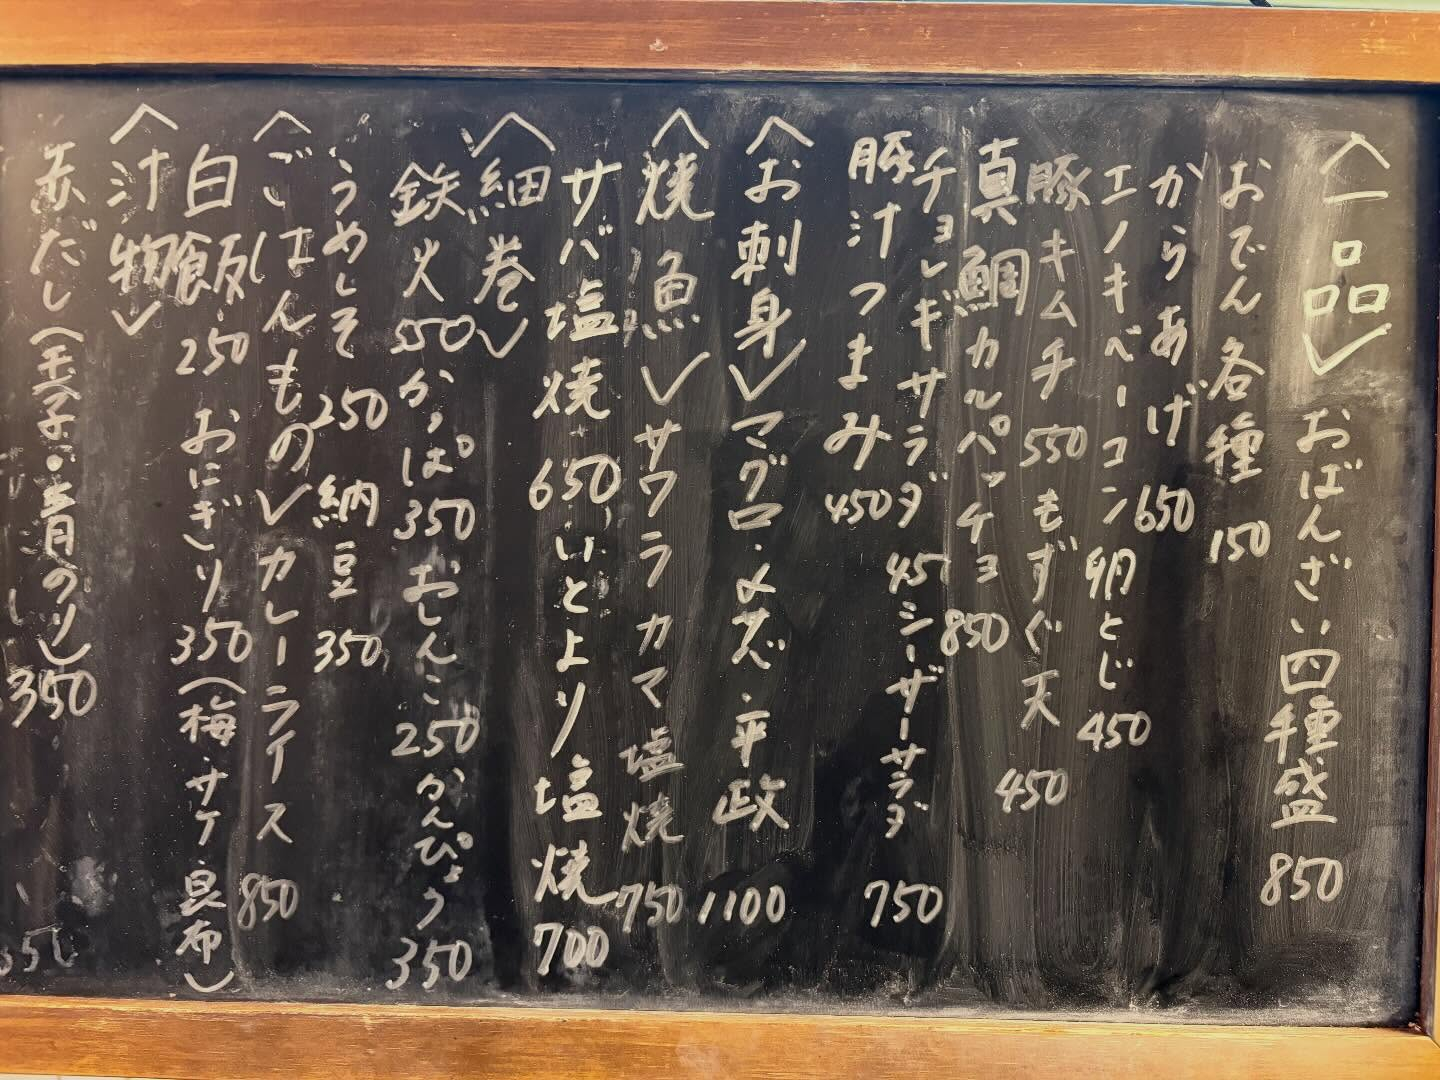 〈一品〉おばんざい四種盛 850
おでん各種 150
からあげ 650
エノキベーコン卵とじ 450
豚キムチ 550 もずく天 450
真鯛カルパッチョ 850
チョレギサラダ 45 シーザーサラダ 750
豚汁つまみ 450
〈お刺身〉マグロ・〆サバ・平政 1100
〈焼魚〉サワラカマ塩焼 750
サバ塩焼 650 いとより塩焼 700
〈細巻〉
鉄火 550 かっぱ 350 おしんこ 250 かんぴょう 350
うめしそ 250 納豆 350
〈ごはんもの〉カレーライス 850
白飯 250 おにぎり 350 (梅・サケ・昆布)
〈汁物〉
赤だし(玉子・青のり) 350